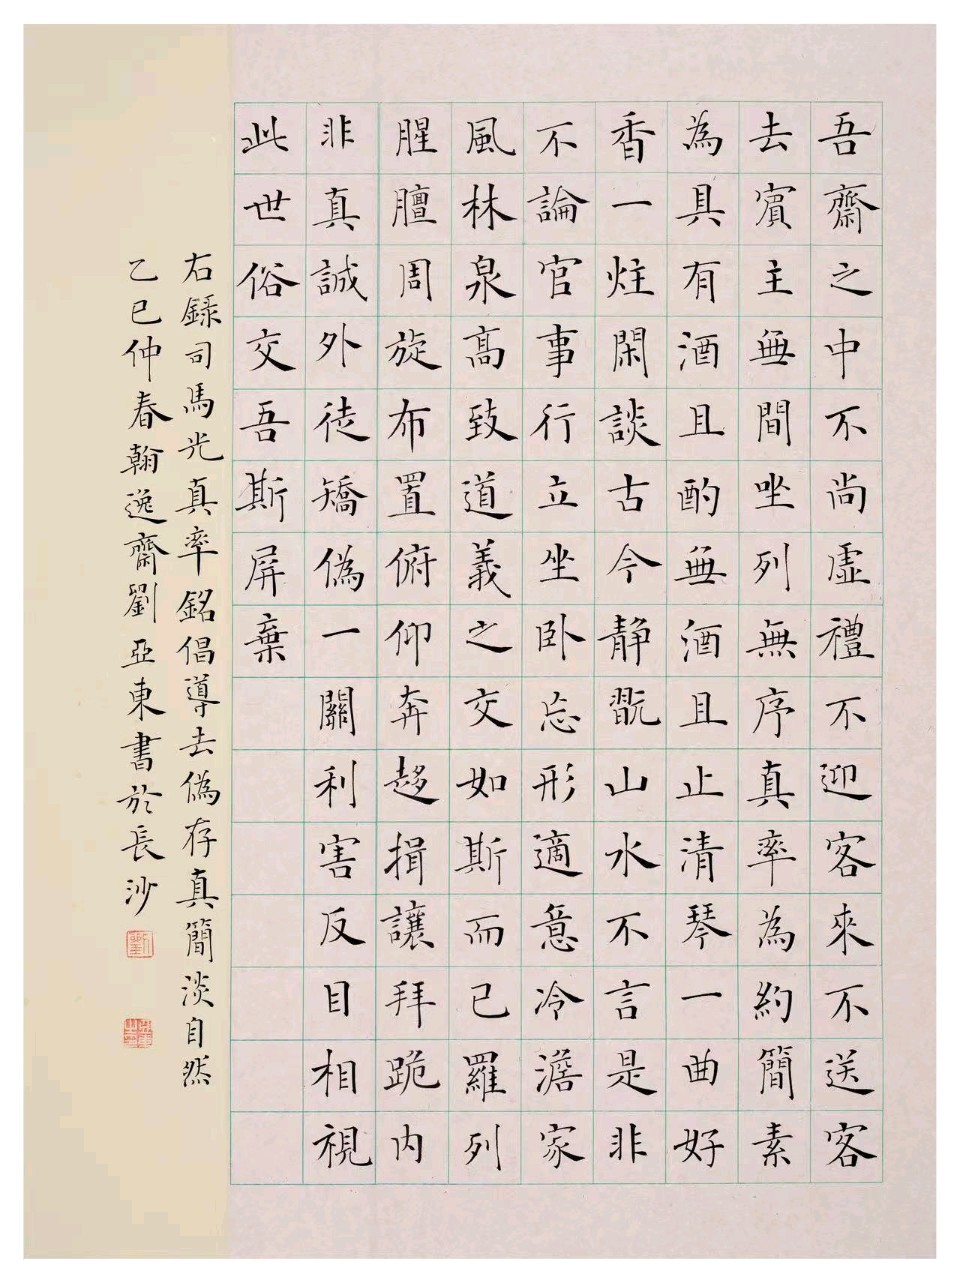 吾齋之中不尚虛禮不迎客來不送客
去賓主無間坐列無序真率為約簡素
為具有酒且酌無酒且止清琴一曲好
香一炷閑談古今静翫山水不言是非
不論官事行立坐卧忘形適意冷澹家
風林泉高致道義之交如斯而已羅列
腥膻周旋布置俯仰奔趍揖讓拜跪内
非真誠外徒矯偽一關利害反目相視
此世俗交吾斯屏棄
右録司馬光真率銘倡導去偽存真簡淡自然
乙巳仲春翰逸齋劉亞東書於長沙